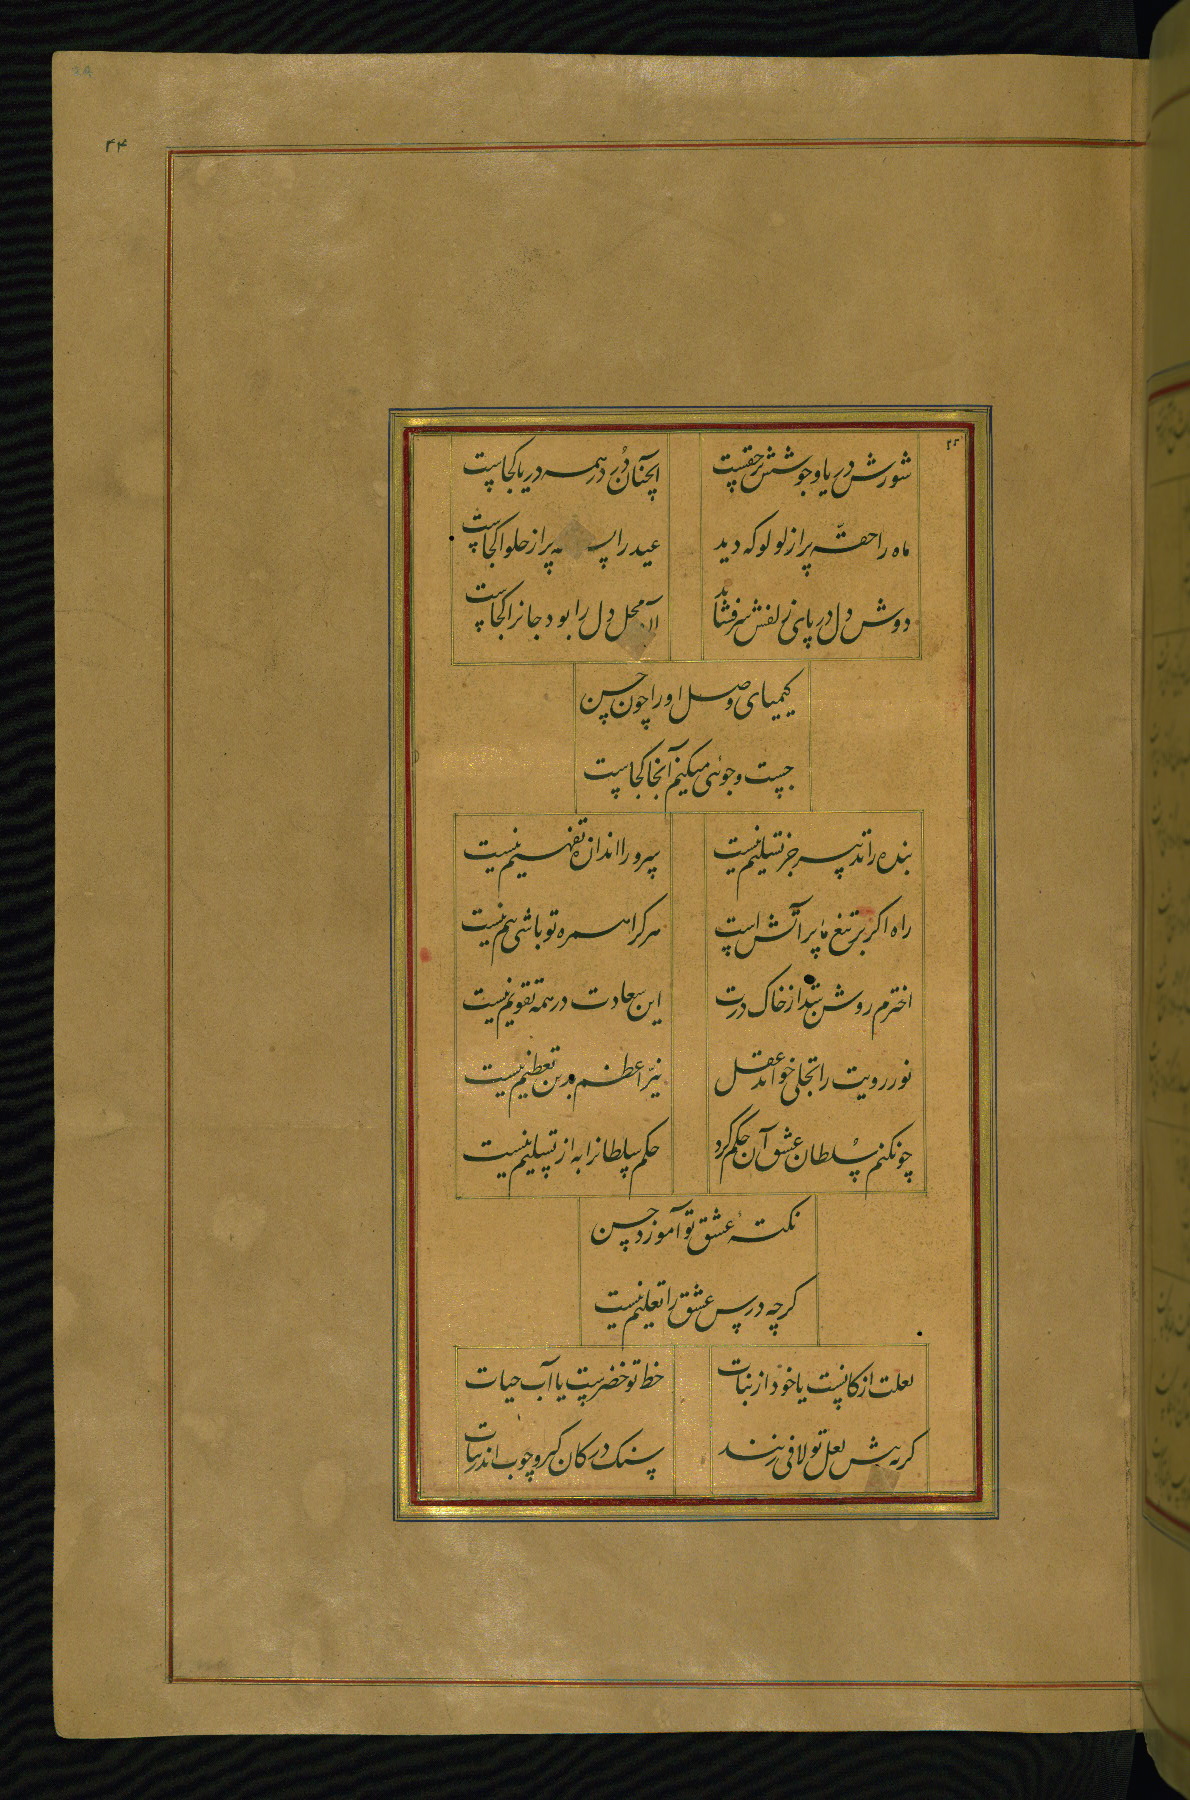 ۴۴
شورش دریا و جوشش بر حقیست
آنچنان در در همه دریا کجاست
ماه را حقّه پر از لولو که دید
عید را پر از حلوا کجاست
دوش دل در پای زلفش سر فشاند
محل دل را بود جانرا کجاست
کیمیای وصل او را چون حسن
جست و جوئی میکنم آنجا کجاست
بنده را تدبیر جز تسلیم نیست
سر و را اندازه تفهیم نیست
راه اکر بر تیغ یا بر آتش است
هر کرا همره تو باشی بیم نیست
اخترم روشن شد از خاک درت
این سعادت در همه تقویم نیست
نور رویت را تجلی خواند عقل
نیّر اعظم بدین تعظیم نیست
چونکنم سلطان عشق آن حکم کرد
حکم سلطانرا به از تسلیم نیست
نکتهٔ عشق تو آموزد حسن
کرچه درس عشق را تعلیم نیست
لعلت از کانست یا خود از نبات
خط تو خضرست یا آب حیات
کر به پیش لعل تو لافی زنند
سنک در کان کیر و چوب اندر نبات